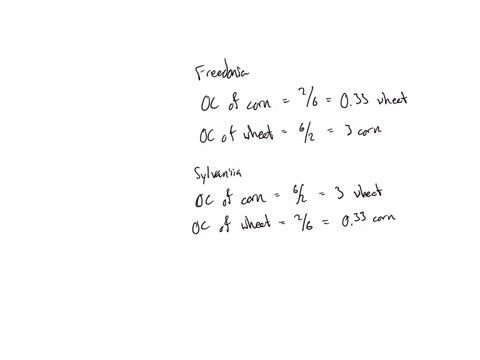 Freedonia
OC of corn = 2/6 = 0.33 wheet
OC of wheat = 6/2 = 3 corn
Sylvania
OC of corn = 6/2 = 3 wheet
OC of wheat = 2/6 = 0.33 corn